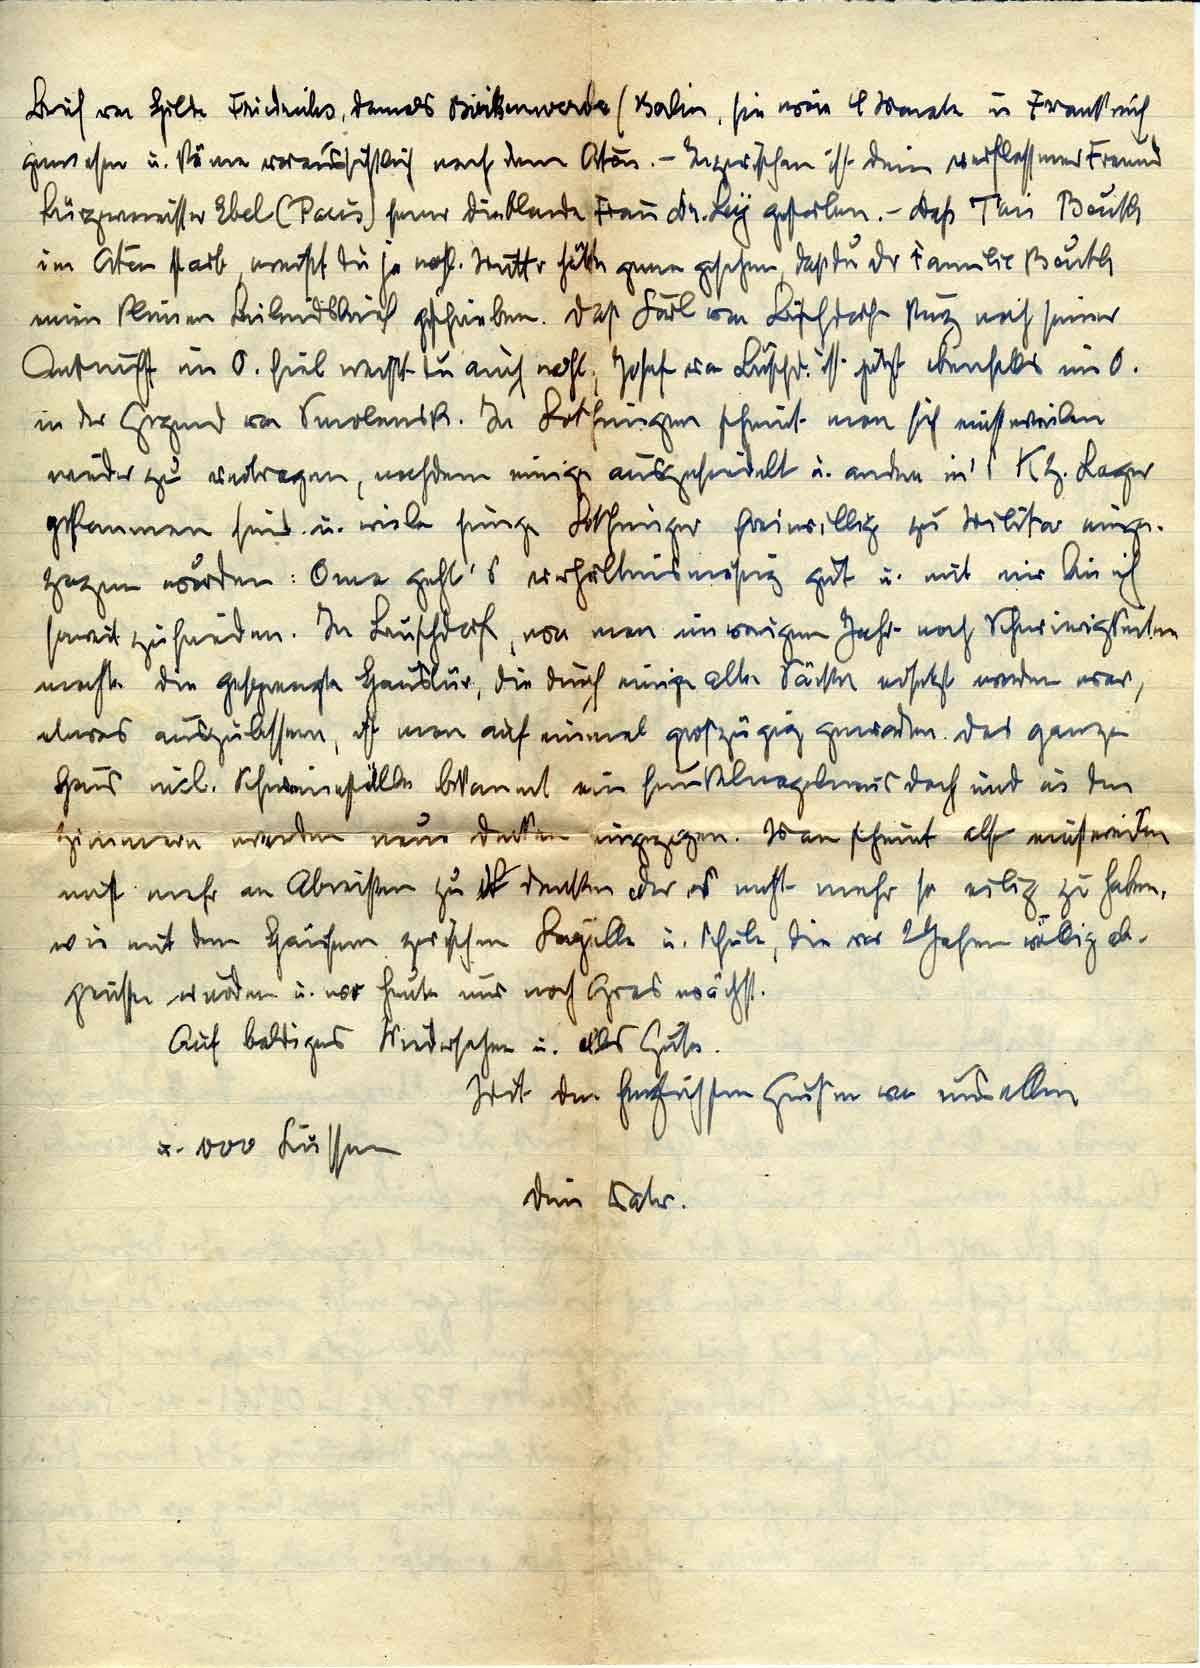 Brief von Hilde Friedrichs, damals Birkenwerder / Berlin, sie wäre 4 Monate in Frankreich
gewesen u. käme voraussichtlich nach dem Osten. – Inzwischen ist dein verflossener Freund
Bürgermeister Ebel (Pacus) ferner die Frau Dr. Ley gestorben. – Daß Theis Bouth
im Osten starb, weißt du ja wohl. Mutter hätte gerne gesehen, daß du der Familie Bouth
einen kleinen Beileidsbrief geschrieben. Daß Karl von Buschdorf kurz nach seiner
Ankunft im O. fiel weißt du auch wohl, Josef von Buschd. ist jetzt ebenfalls im O.
in der Gegend von Smolensk. In Lothringen scheint man sich einstweilen
wieder zu vertragen, nachdem einige ausgesiedelt u. andere in's Kz. Lager
gekommen sind u. viele junge Lothringer freiwillig zu Militär einge-
zogen wurden: Oma geht's verhältnismäsig gut u. mit mir bin ich
soweit zufrieden. In Buschdorf, wo man im vorigen Jahr noch Schwierigkeiten
machte die gesprengte Haustür, die durch einige alte Bretter ersetzt worden war,
etwas auszubessern, ist man auf einmal großzügig geworden. Das ganze
Haus incl. Schweineställe bekommt ein funkelnagelneues Dach und in den
Zimmern werden neue Decken eingezogen. Man scheint also einstweilen
nicht mehr an Abreißen zu denken oder es nicht mehr so eilig zu haben,
wie mit den Häusern zwischen Kapelle u. Schule, die vor 2 Jahren völlig ab-
gerissen wurden u. wo heute nur noch Gras wächst.
Auf baldiges Wiedersehen u. alles Gute.
Mit den herzlichsten Grüßen von uns allen
u. 000 Küssen
Dein Vater.